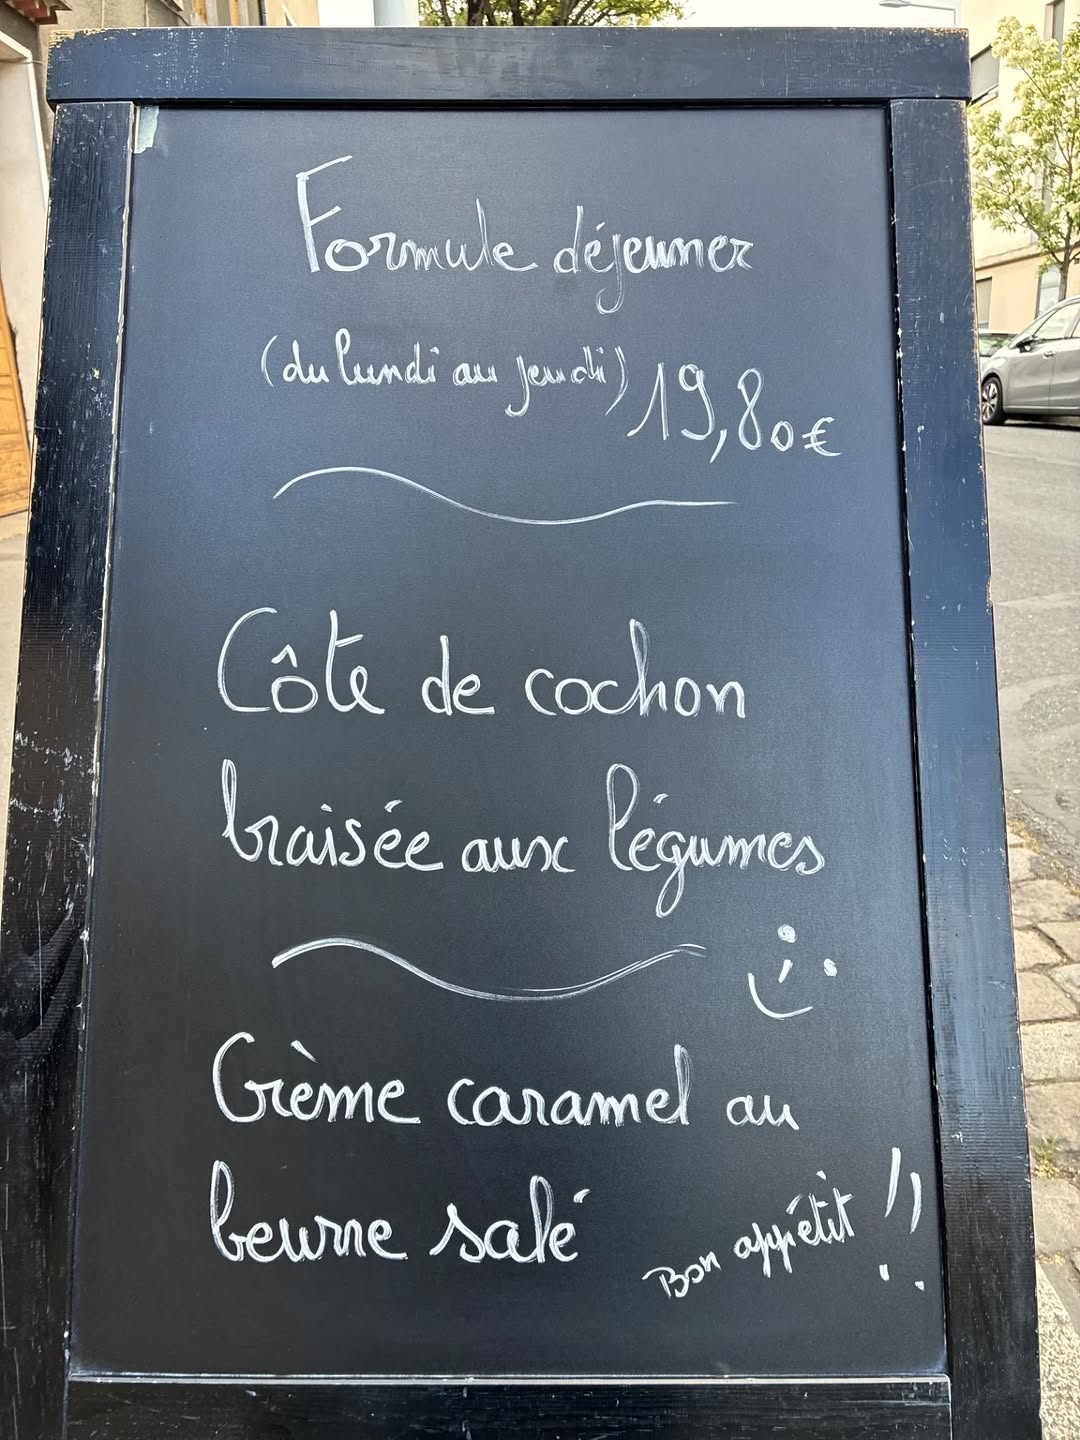 Formule déjeuner
(du lundi au jeudi) 19,80€
Côte de cochon
braisée aux légumes
Crème caramel au
beurre salé
Bon appétit !!